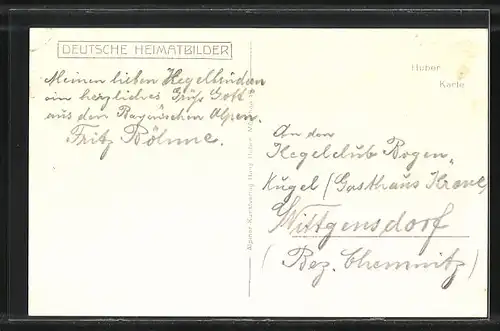 DEUTSCHE HEIMATBILDER
Meinen lieben Kegelbrüdern
ein herzliches Grüß Gott
aus den Bayerischen Alpen.
Fritz Böhme.
Huber
Karte
An den
Kegelclub Bogen-
kugel (Gasthaus Krone)
Wittgensdorf
(Bez. Chemnitz)
Alpiner Kunstverlag Hans Huber